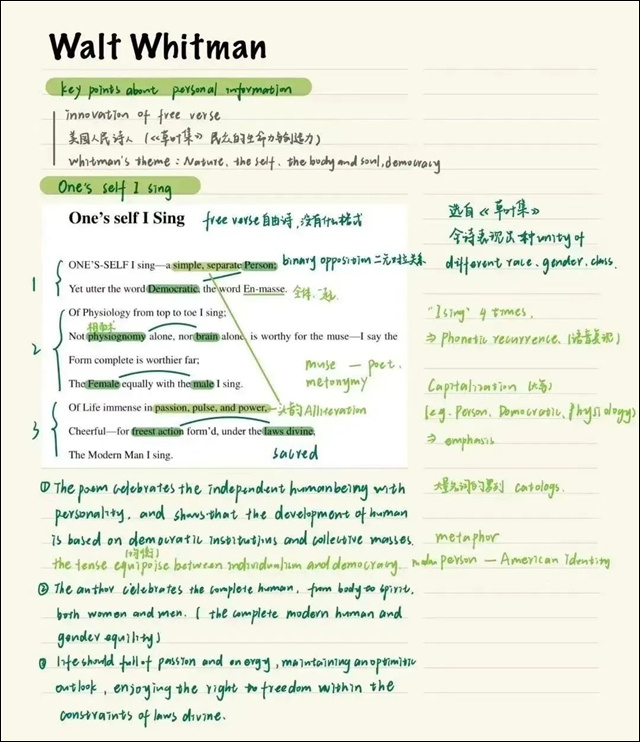 Walt Whitman
key points about personal information
innovation of free verse
美国人民诗人（《草叶集》民众的生命力与创造力）
whitman's theme : Nature, the self, the body and soul, democracy
One's self I sing
One's self I Sing
free verse 自由诗，没有什么格式
选自《草叶集》
全诗表现出一种 unity of
different race, gender, class.
1
ONE'S-SELF I sing—a simple, separate Person;
binary opposition 二元对立关系
Yet utter the word Democratic, the word En-masse.
全体，一起
2
Of Physiology from top to toe I sing;
相貌
Not physiognomy alone, nor brain alone, is worthy for the muse—I say the
Form complete is worthier far;
muse — poet.
metonymy
The Female equally with the male I sing.
"I sing" 4 times,
⇒ Phonetic recurrence. (语音复现)
3
Of Life immense in passion, pulse, and power,
头韵 Alliteration
Cheerful—for freest action form'd, under the laws divine,
The Modern Man I sing.
sacred
Capitalization (大写)
(e.g. Person, Democratic, Physiology)
⇒ emphasis
大量名词的罗列 catologs.
① The poem celebrates the independent humanbeing with
personality, and shows that the development of human
is based on democratic institutions and collective masses.
(均衡)
the tense equipoise between individualism and democracy.
metaphor
person — American identity
② The author celebrates the complete human, from body to spirit,
both women and men. ( the complete modern human and
gender equility)
life should full of passion and energy, maintaining an optimitic
outlook, enjoying the right to freedom within the
constraints of laws divine.